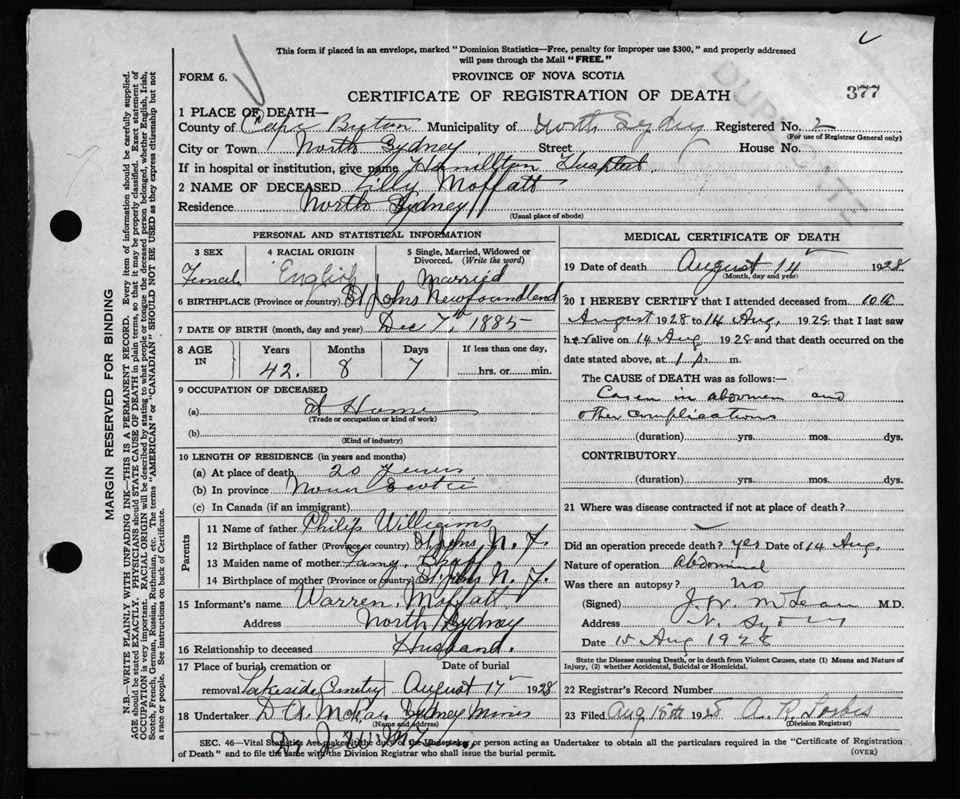 This form if placed in an envelope, marked "Dominion Statistics—Free, penalty for improper use $300," and properly addressed
will pass through the Mail "FREE."
FORM 6.
PROVINCE OF NOVA SCOTIA
CERTIFICATE OF REGISTRATION OF DEATH
377
DUPLICATE
1 PLACE OF DEATH—
County of Cape Breton Municipality of North Sydney Registered No. 2
(For use of Registrar General only)
City or Town North Sydney Street House No.
If in hospital or institution, give name Hamilton Hospital.
2 NAME OF DECEASED Lilly Moffatt
Residence North Sydney
(Usual place of abode)
PERSONAL AND STATISTICAL INFORMATION
3 SEX Female
4 RACIAL ORIGIN English
5 Single, Married, Widowed or Divorced. (Write the word) Married
6 BIRTHPLACE (Province or country) St Johns Newfoundland
7 DATE OF BIRTH (month, day and year) Dec 7th, 1885
8 AGE IN Years Months Days If less than one day,
42. 8 7 hrs. or min.
9 OCCUPATION OF DECEASED
(a) At Home
(Trade or occupation or kind of work)
(b)
(Kind of industry)
10 LENGTH OF RESIDENCE (in years and months)
(a) At place of death 20 Years
(b) In province Nova Scotia
(c) In Canada (if an immigrant)
Parents
11 Name of father Philip Williams
12 Birthplace of father (Province or country) St Johns N. F.
13 Maiden name of mother
14 Birthplace of mother (Province or country) St. Johns N. F.
15 Informant's name Warren Moffatt
Address North Sydney
16 Relationship to deceased Husband.
17 Place of burial, cremation or removal Lakeside Cemetry
Date of burial August 17 1928
18 Undertaker D A McRae Sydney Mines
(Name and address)
MEDICAL CERTIFICATE OF DEATH
19 Date of death August 14 1928
(Month, day and year)
20 I HEREBY CERTIFY that I attended deceased from 10th
August 1928 to 14 Aug, 1928 that I last saw
her alive on 14 Aug 1928 and that death occurred on the
date stated above, at 1 p. m.
The CAUSE OF DEATH was as follows:—
in abdomen and
other complications
(duration) yrs. mos. dys.
CONTRIBUTORY
(duration) yrs. mos. dys.
21 Where was disease contracted if not at place of death?
Did an operation precede death? yes Date of 14 Aug.
Nature of operation Abdominal
Was there an autopsy? no
(Signed) J. W. McLean M.D.
Address N. Sydney
Date 15 Aug 1928
State the Disease causing Death, or in death from Violent Causes, state (1) Means and Nature of
Injury, (2) whether Accidental, Suicidal or Homicidal.
22 Registrar's Record Number
23 Filed Aug 15th 1928 A. R. Forbes
(Division Registrar)
SEC. 46—Vital Statistics Act makes it the duty of the Undertaker or person acting as Undertaker to obtain all the particulars required in the "Certificate of Registration
of Death" and to file the same with the Division Registrar who shall issue the burial permit.
(OVER)
MARGIN RESERVED FOR BINDING
N.B.—WRITE PLAINLY WITH UNFADING INK—THIS IS A PERMANENT RECORD. Every item of information should be carefully supplied.
AGE should be stated EXACTLY. PHYSICIANS should STATE CAUSE OF DEATH in plain terms, so that it may be properly classified. Exact statement of
OCCUPATION is very important. RACIAL ORIGIN will be described by stating to what people or tongue the deceased person belonged, whether English, Irish,
Scotch, French, German, Russian, Ruthenian, etc. The terms "AMERICAN" or "CANADIAN" SHOULD NOT BE USED as they express citizenship but not
a race or people. See instructions on back of Certificate.